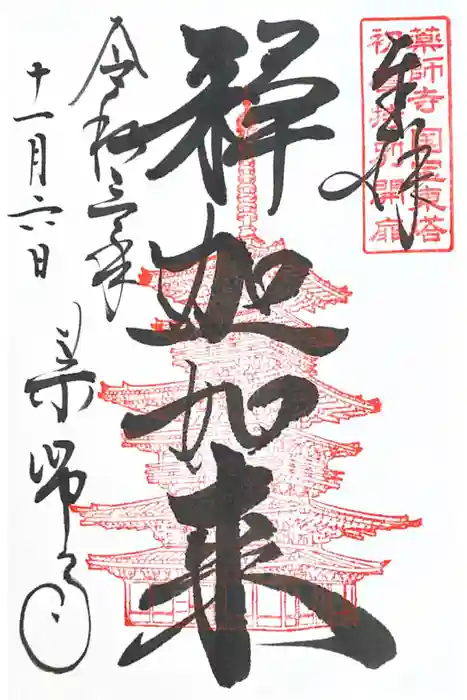 奉拝
薬師寺 国宝東塔
初 開扉
釋迦如来
令和三年
十一月六日
薬師寺